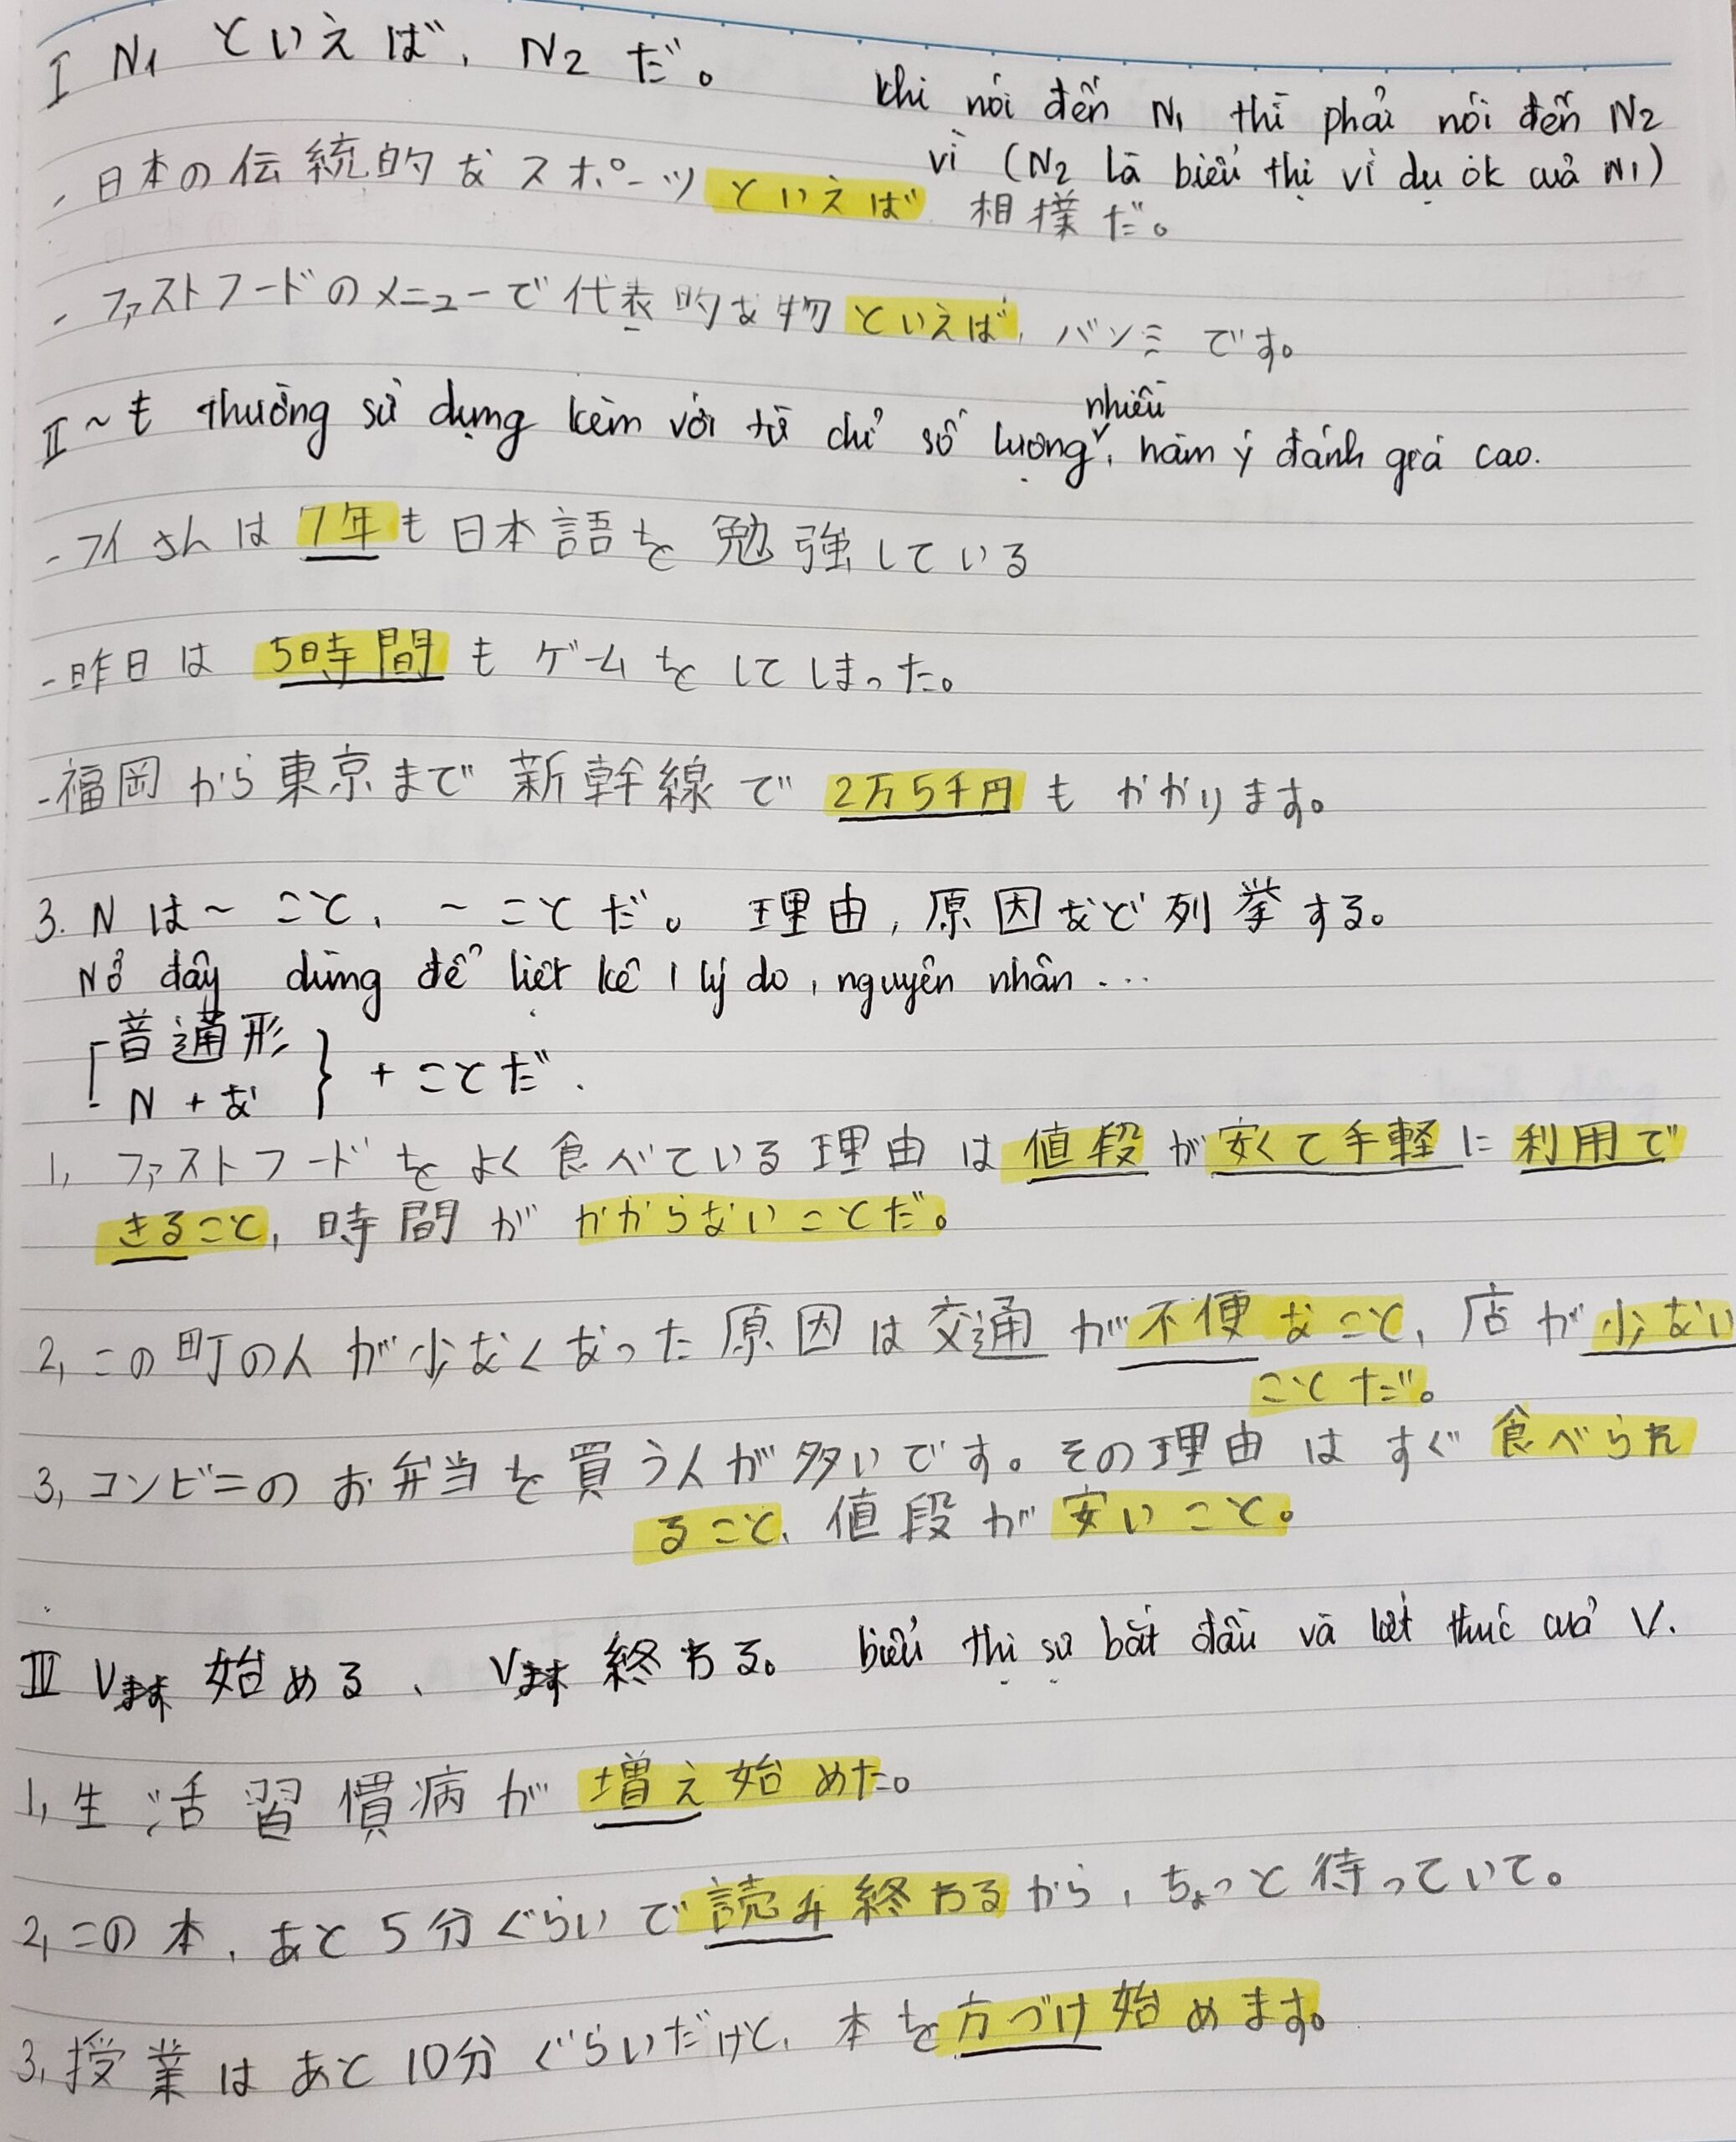 I N1 といえば, N2 だ。
khi nói đến N1 thì phải nói đến N2
vì (N2 là biểu thị ví dụ ok cuả N1)
- 日本の伝統的なスポーツといえば 相撲だ。
- ファストフードのメニューで代表的な物といえば, バンミです。
II ~も thường sử dụng kèm với từ chỉ số lượng nhiều, hàm ý đánh giá cao.
- フイさんは7年も日本語を勉強している
- 昨日は 5時間もゲームをしてしまった。
- 福岡から東京まで新幹線で 2万5千円もかかります。
3. N は~こと, ~ことだ。 理由, 原因など列挙する。
N ở đây dùng để liệt kê 1 lý do, nguyên nhân ...
[普通形
N + な } + ことだ.
1, ファストフードをよく食べている理由は値段が安くて手軽に利用で
きること, 時間がかからないことだ。
2, この町の人が少なくなった原因は交通が不便なこと, 店が少ない
ことだ。
3, コンビニのお弁当を買う人が多いです。その理由はすぐ食べられ
ること, 値段が安いこと。
III Vます 始める、 Vます 終わる。 biểu thị sự bắt đầu và kết thúc cuả V.
1, 生活習慣病が増え始めた。
2, この本, あと5分ぐらいで読み終わるから, ちょっと待っていて。
3, 授業はあと10分ぐらいだけど, 本を方づけ始めます。